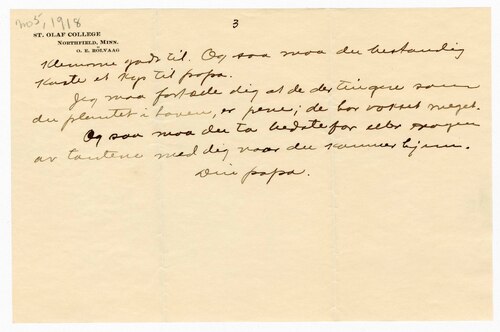 no 5, 1918
3
ST. OLAF COLLEGE
NORTHFIELD, MINN.
O. E. ROLVAAG
klemme godt til. Og saa maa du bestandig
kaste et kys til papa.
Jeg maa fortælle dig at de der tingene som
du plantet i haven, er pene; de har vokset meget.
Og saa maa du ta bedstefar eller nogen
av tantene med dig naar du kommer hjem.
Din papa.